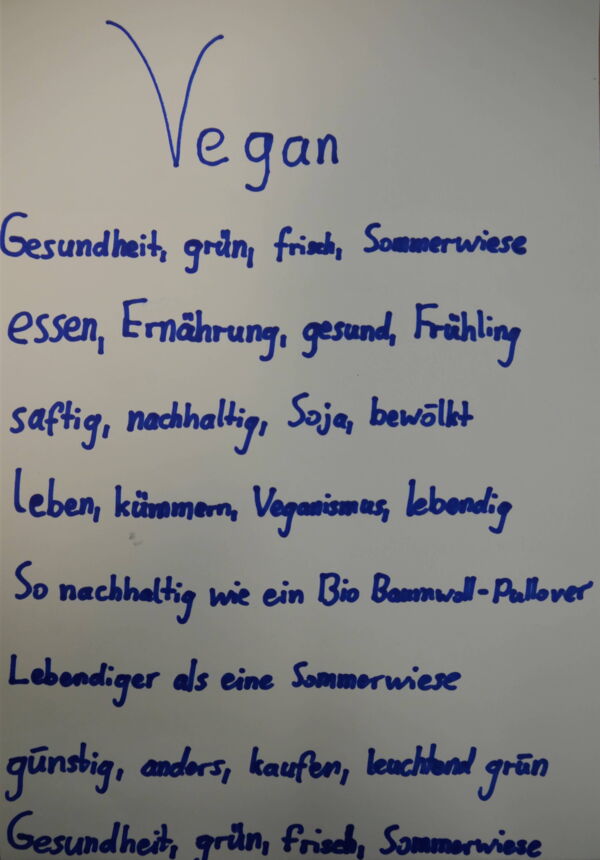 Vegan
Gesundheit, grün, frisch, Sommerwiese
essen, Ernährung, gesund, Frühling
saftig, nachhaltig, Soja, bewölkt
leben, kümmern, Veganismus, lebendig
So nachhaltig wie ein Bio Baumwoll-Pullover
Lebendiger als eine Sommerwiese
günstig, anders, kaufen, leuchtend grün
Gesundheit, grün, frisch, Sommerwiese